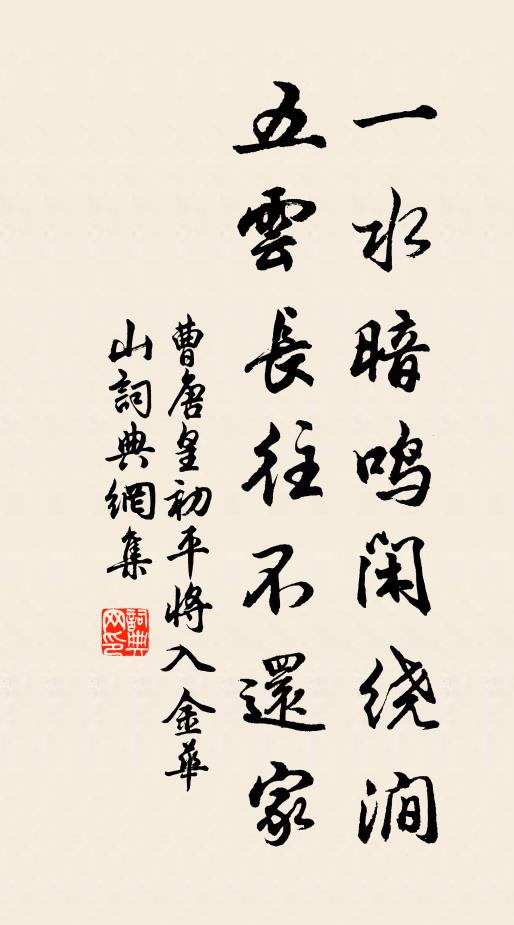 一水暗鸣闲绕涧
五雲長往不還家
曹唐皇初平将入金華
山詞典網集
詞典
网印